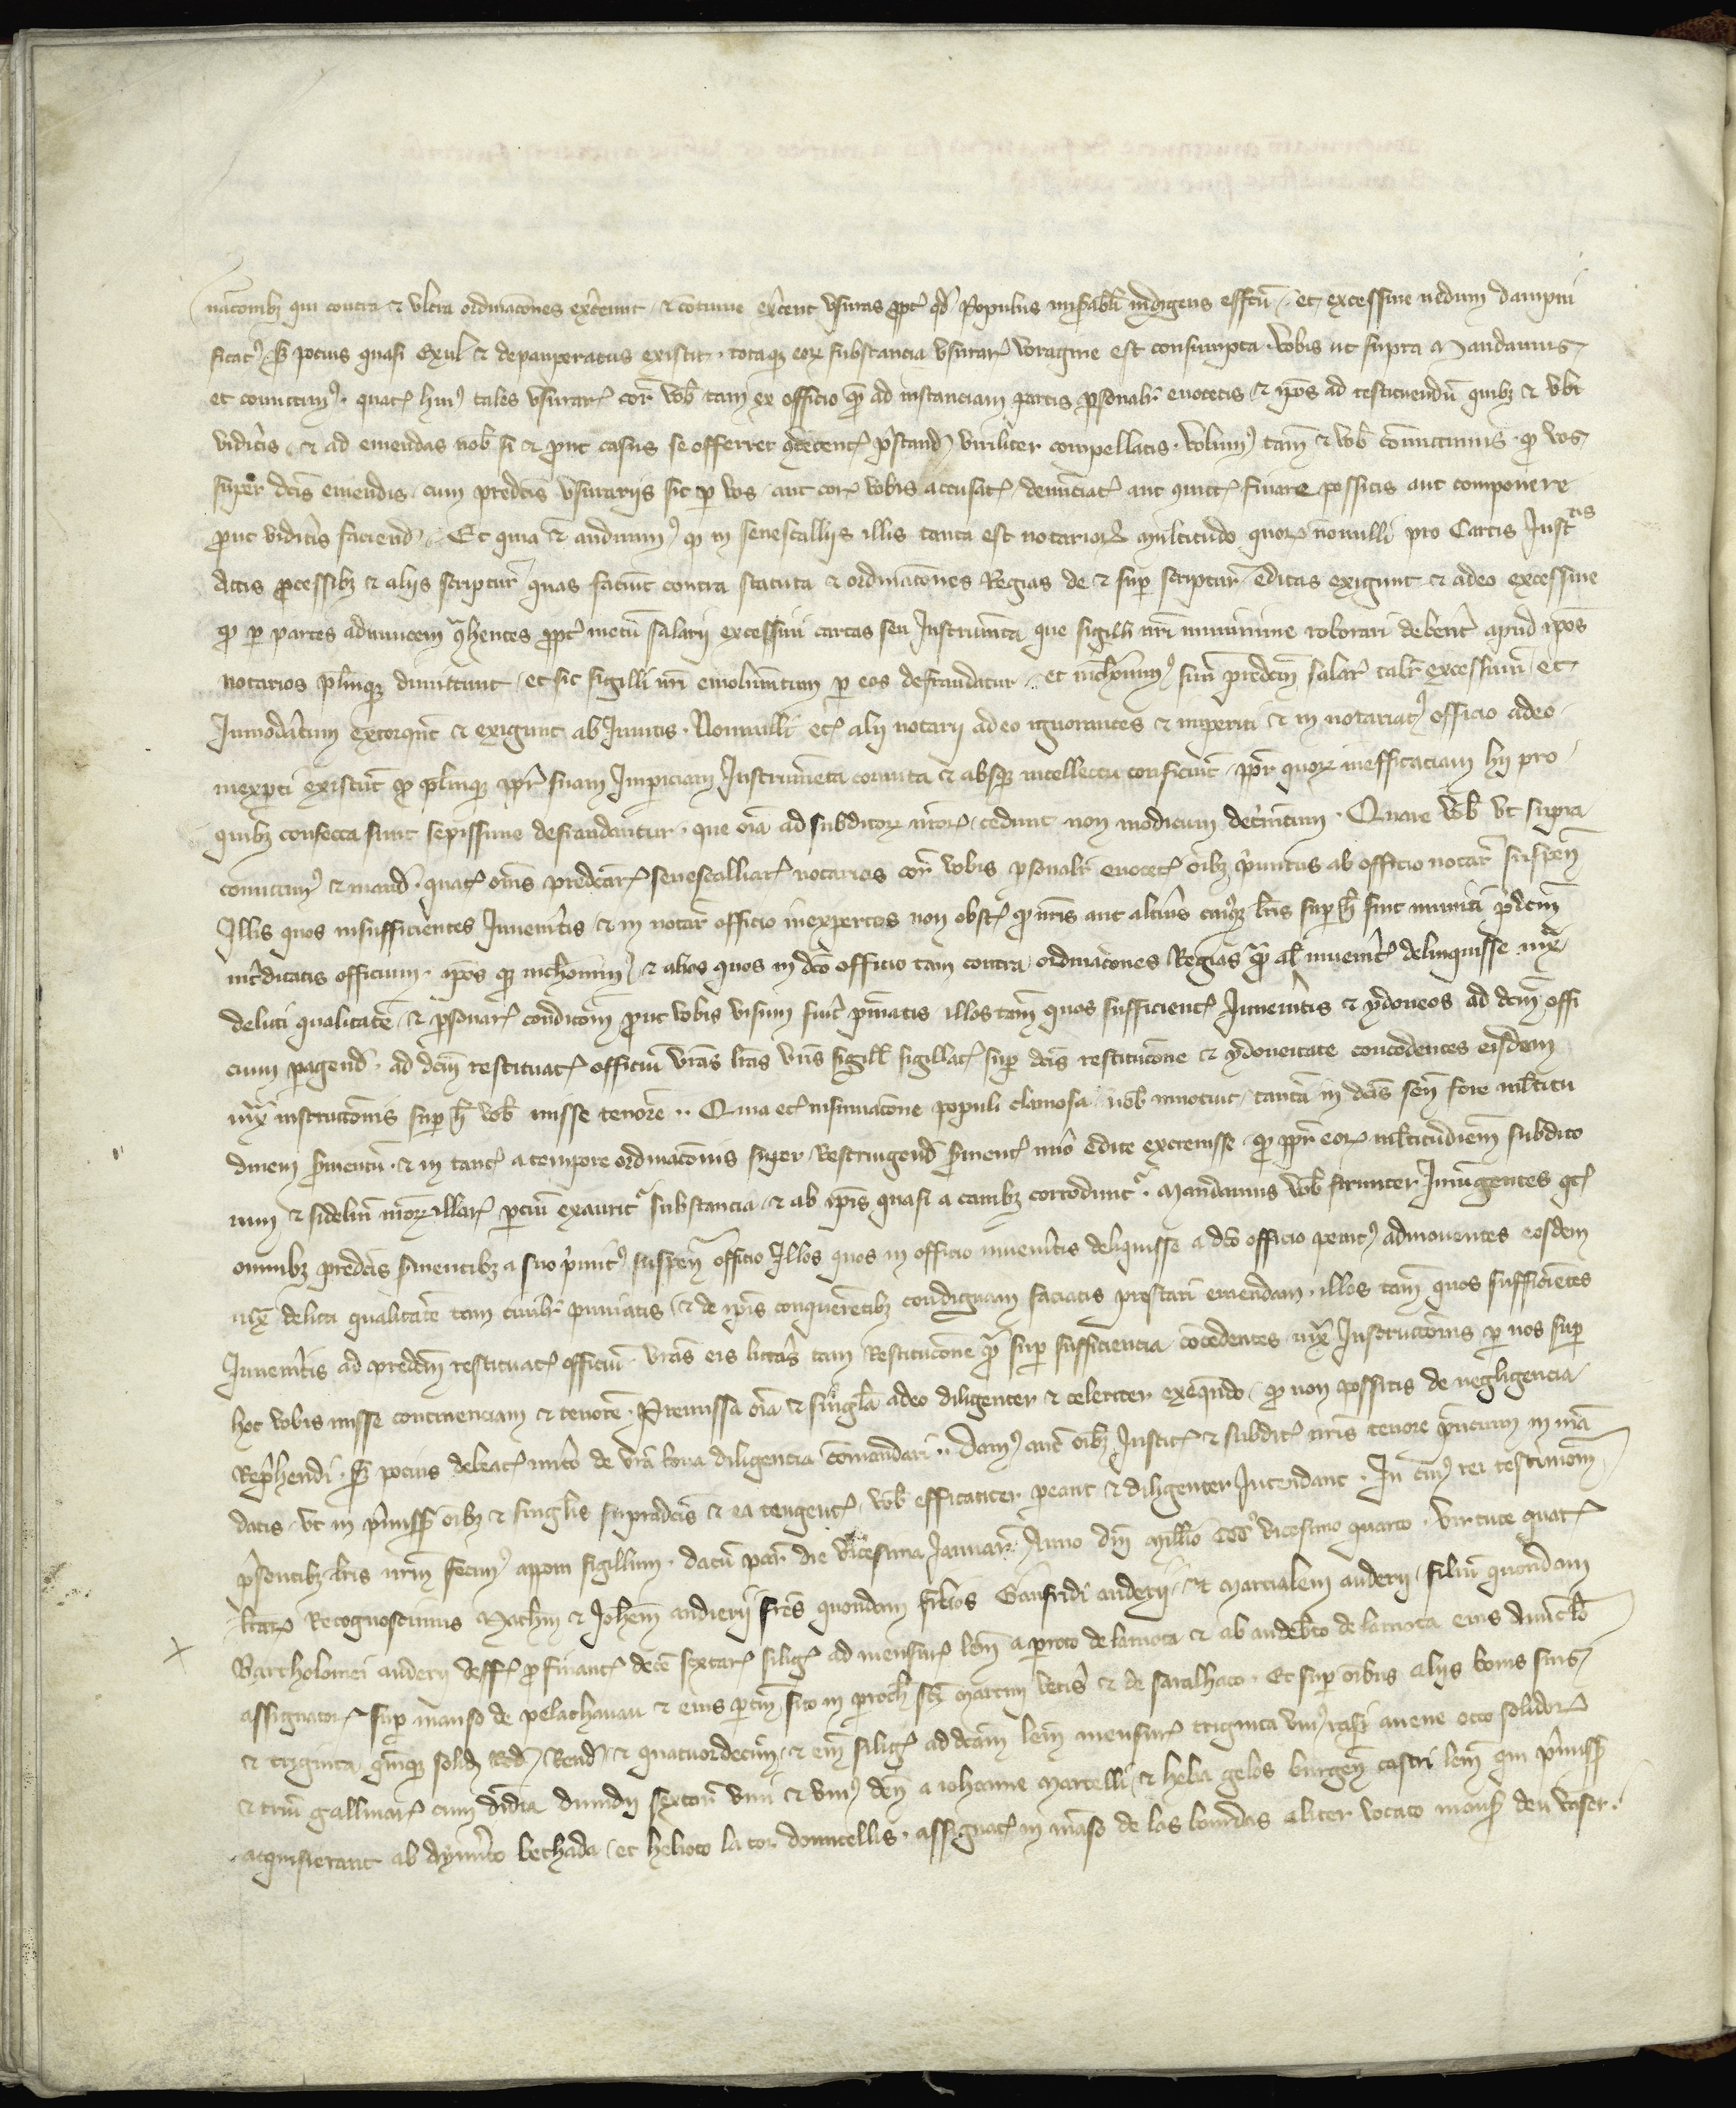 nacionibz qui contra & vltra ordinacones exercent & comuniter exercent vsuras propter qd Populus miserabiliter indigens effcus et excessiue nedum dampni
ficatus sed pocius quasi exul & depauperatus existit . totaqz eorum substancia vsurarum voragine est consumpta . Vobis ut supra Mandamus
et comittimus . quatenus huius tales vsurarios coram vobis tam ex officio quam ad instanciam partis personaliter euocetis & ipsos ad restituendum quibz & vbi
videritis & ad emendas nobis si & prout casus se offerret decentes prestandas viriliter compellatis . Volumus tamen & vobis comittimus . quod vos
super dictis emendis . cum predictis vsurariis sic per vos aut coram vobis accusatis denunciatis aut conuictis finare possitis aut componere
prout videritis faciendum . Et quia & audiuimus quod in senescalliis illis tanta est notariorum multitudo quorum nonnulli pro Cartis Instris
Actis processibz & aliis scripturis quas faciunt contra statuta & ordinacones Regias de & super scripturis editas exigunt & adeo excessiue
quod per partes adinuicem contrahentes propter metum salarii excessiui cartas seu Instrumenta que sigilli nostri munimine roborari deberent apud ipsos
notarios plerumqz dimittunt et sic sigilli nostri emolumentum per eos defraudatur . et nichilominus suum predictum salarium taliter excessiuum et
Inmoderatum extorquent & exigunt ab Inuitis . Nonnulli etiam alii notarii adeo ignorantes & imperiti & in notariatus officio adeo
inexperti existunt quod plerumqz propter suam Impericiam Instrumenta corrupta & absqz intellectu conficiunt propter quorum inefficaciam hii pro
quibz confecta sunt sepissime defraudantur . que omnia ad subditorum nostrorum cedunt non modicum detrimentum . Quare vobis vt supra
comittimus & mandamus . quatenus omnes predictarum senescalliarum notarios coram vobis personaliter euocetis omnibz primitus ab officio notariatus suspensis
Illis quos insufficientes Inueneritis & in notariatus officio inexpertos non obstante quod nostris aut alterius cuiusqz litteris super hoc sint muniti predictum
interdicatis officium . ipsos qz nichilominus & alios quos in dicto officio tam contra ordinacones Regias quam alias inueneritis delinquisse iuxta
delicti qualitatem & personarum condicionem prout vobis visum fuerit puniatis illos tamen quos sufficientes Inueneritis & ydoneos ad dictum offi
cium peragendum . ad dictum restituatis officium vestras litteras vestris sigillis sigillatas super dictis restitucione & ydoneitate concedentes eisdem
iuxta instructionis super hoc vobis misse tenorem .. Quia etiam insinuacione populi clamosa nobis innotuit tantam in dictis senescalliis fore multitu
dinem seruientum . & in tantum a tempore ordinacionis super Restringendis seruientibus nuper edite excreuisse quod propter eorum multitudinem subdito
rum & fidelium nostrorum illarum parcium exauritur substancia & ab ipsis quasi a canibz corroduntur . Mandamus vobis firmiter Iniungentes quatenus
omnibz predictis seruientibz a suo primitus suspensis officio Illos quos in officio inueneritis deliquisse a dicto officio penitus admouentes eosdem
iuxta delicti qualitatem tam ciuiliter puniatis & de ipsis conquerentibz condignam faciatis prestari emendam . illos tamen quos sufficientes
Inueneritis ad predictum restituatis officium . vestras eis litteras tam Restitucione quam super sufficiencia concedentes iuxta Instructionis per nos super
hoc vobis misse continenciam & tenorem . Premissa omnia & singula adeo diligenter & celeriter exequendo quod non possitis de negligencia
Reprehendi . sed pocius debeatis merito de vestra bona diligencia commendari .. Damus autem omnibz Iusticiariis & subditis nostris tenore presencium in man
datis vt in premissis omnibz & singulis supradictis & ea tangentibus vobis efficaciter pareant & diligenter Intendant . In cuius rei testimonium
presentibz litteris nostrum fecimus apponi sigillum . datum parisius die vicesima Ianuarii Anno domini Millesimo CCCo vicesimo quarto . Virtute quarum
litterarum Recognoscimus Mathiam & Iohannem audierii fratres quondam filios Gaufridi auderii & marcialem auderii filium quondam
Bartholomei auderii deffuncti pro finantia decem sextariorum siliginis ad mensuram lem a petro de lamota & ab audeberto de lamota eius auunculo
assignatorum super manso de pelachauau & eius pertinenciis sito in parochia sancti Martini veteris & de saralhaco . Et super omnibus aliis bonis suis
& triginta quinqz solidis Rendualibus & quatuordecim & emin siliginis ad dictam lem mensuram triginta vnius rasorum auene octo solidorum
& trium gallinarum cum dimidia dimidii sextarii vini & vnius den a iohanne Martelli & helia gelos burgensibus castri lem qui premissa
acquisierant ab Aymerico bechada et helioto la tor domicellis . assignatis in manso de las bourdas aliter vocato mansus deu vaser .
X